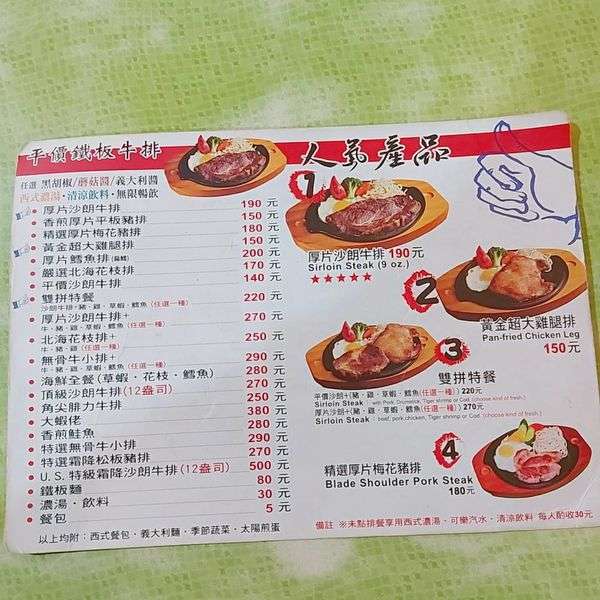 平價鐵板牛排
任選 黑胡椒/蘑菇醬/義大利醬
西式濃湯・清涼飲料・無限暢飲
厚片沙朗牛排 190 元
香煎厚片平板豬排 150 元
精選厚片梅花豬排 180 元
黃金超大雞腿排 150 元
厚片鱈魚排 200 元
嚴選北海花枝排 170 元
平價沙朗牛排 140 元
雙拼特餐 220 元
沙朗牛排+豬、雞、草蝦、鱈魚(任選一種)
厚片沙朗牛排+ 270 元
牛、豬、雞、草蝦、鱈魚(任選一種)
北海花枝排+ 250 元
牛、豬、雞(任選一種)
無骨牛小排+ 290 元
牛、豬、雞、草蝦、鱈魚(任選一種)
海鮮全餐(草蝦、花枝、鱈魚) 280 元
頂級沙朗牛排(12盎司) 270 元
角尖腓力牛排 250 元
大蝦佬 380 元
香煎鮭魚 280 元
特選無骨牛小排 290 元
特選霜降松板豬排 270 元
U.S.特級霜降沙朗牛排(12盎司) 500 元
鐵板麵 80 元
濃湯、飲料 30 元
餐包 5 元
以上均附：西式餐包、義大利麵、季節蔬菜、太陽煎蛋
人氣產品
1
厚片沙朗牛排 190元
Sirloin Steak (9 oz.)
★★★★★
2
黃金超大雞腿排
Pan-fried Chicken Leg
150元
3
雙拼特餐
平價沙朗+(豬、雞、草蝦、鱈魚(任選一種))220元
Sirloin Steak with Pork, Drumstick, Tiger shrimp or Cod. (choose kind of fresh.)
厚片沙朗+(牛、豬、雞、草蝦、鱈魚(任選一種))270元
Sirloin Steak beef, pork, chicken, Tiger shrimp or Cod. (choose kind of fresh.)
4
精選厚片梅花豬排
Blade Shoulder Pork Steak
180元
備註 ※未點排餐享用西式濃湯、可樂汽水、清涼飲料 每人酌收30元